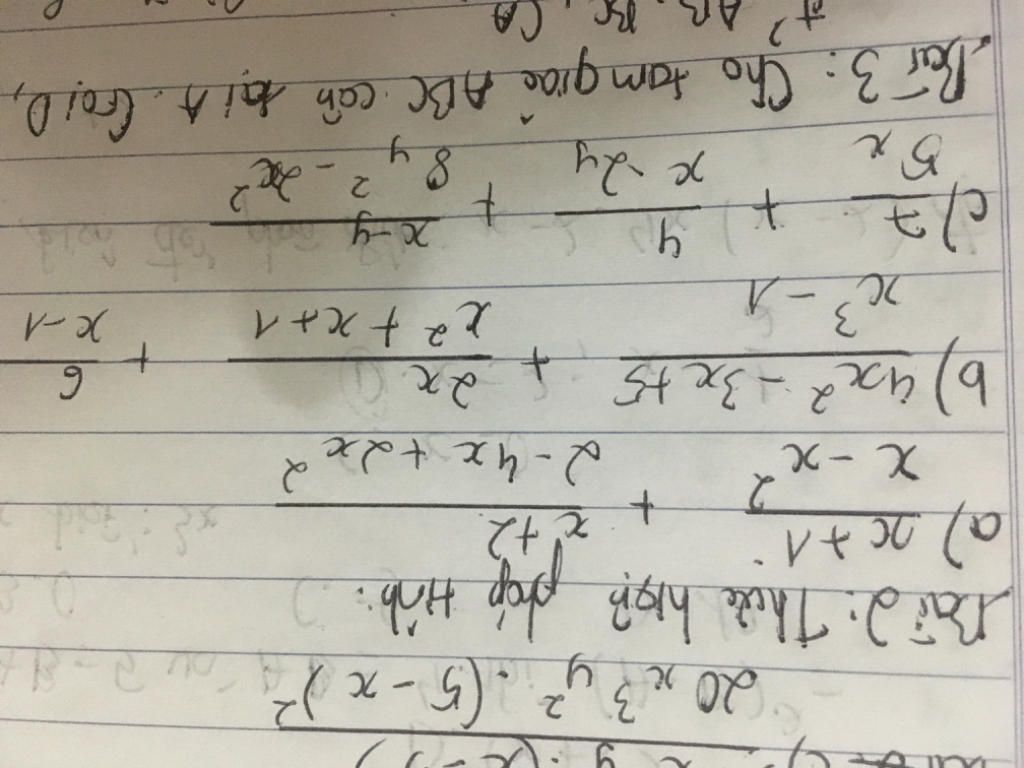 20x³y². (5 - x)²
Bài 2: Thực hiện phép tính:
a) x+1/x - x² + x+2/2 - 4x + 2x²
b) 4x² - 3x + 5/x³ - 1 + 2x/x² + x + 1 + 6/x - 1
c) 7/5x + 4/x - 2y + x - y/8y² - 2x²
Bài 3: Cho tam giác ABC cân tại A. Gọi D,
AB, BC, CA